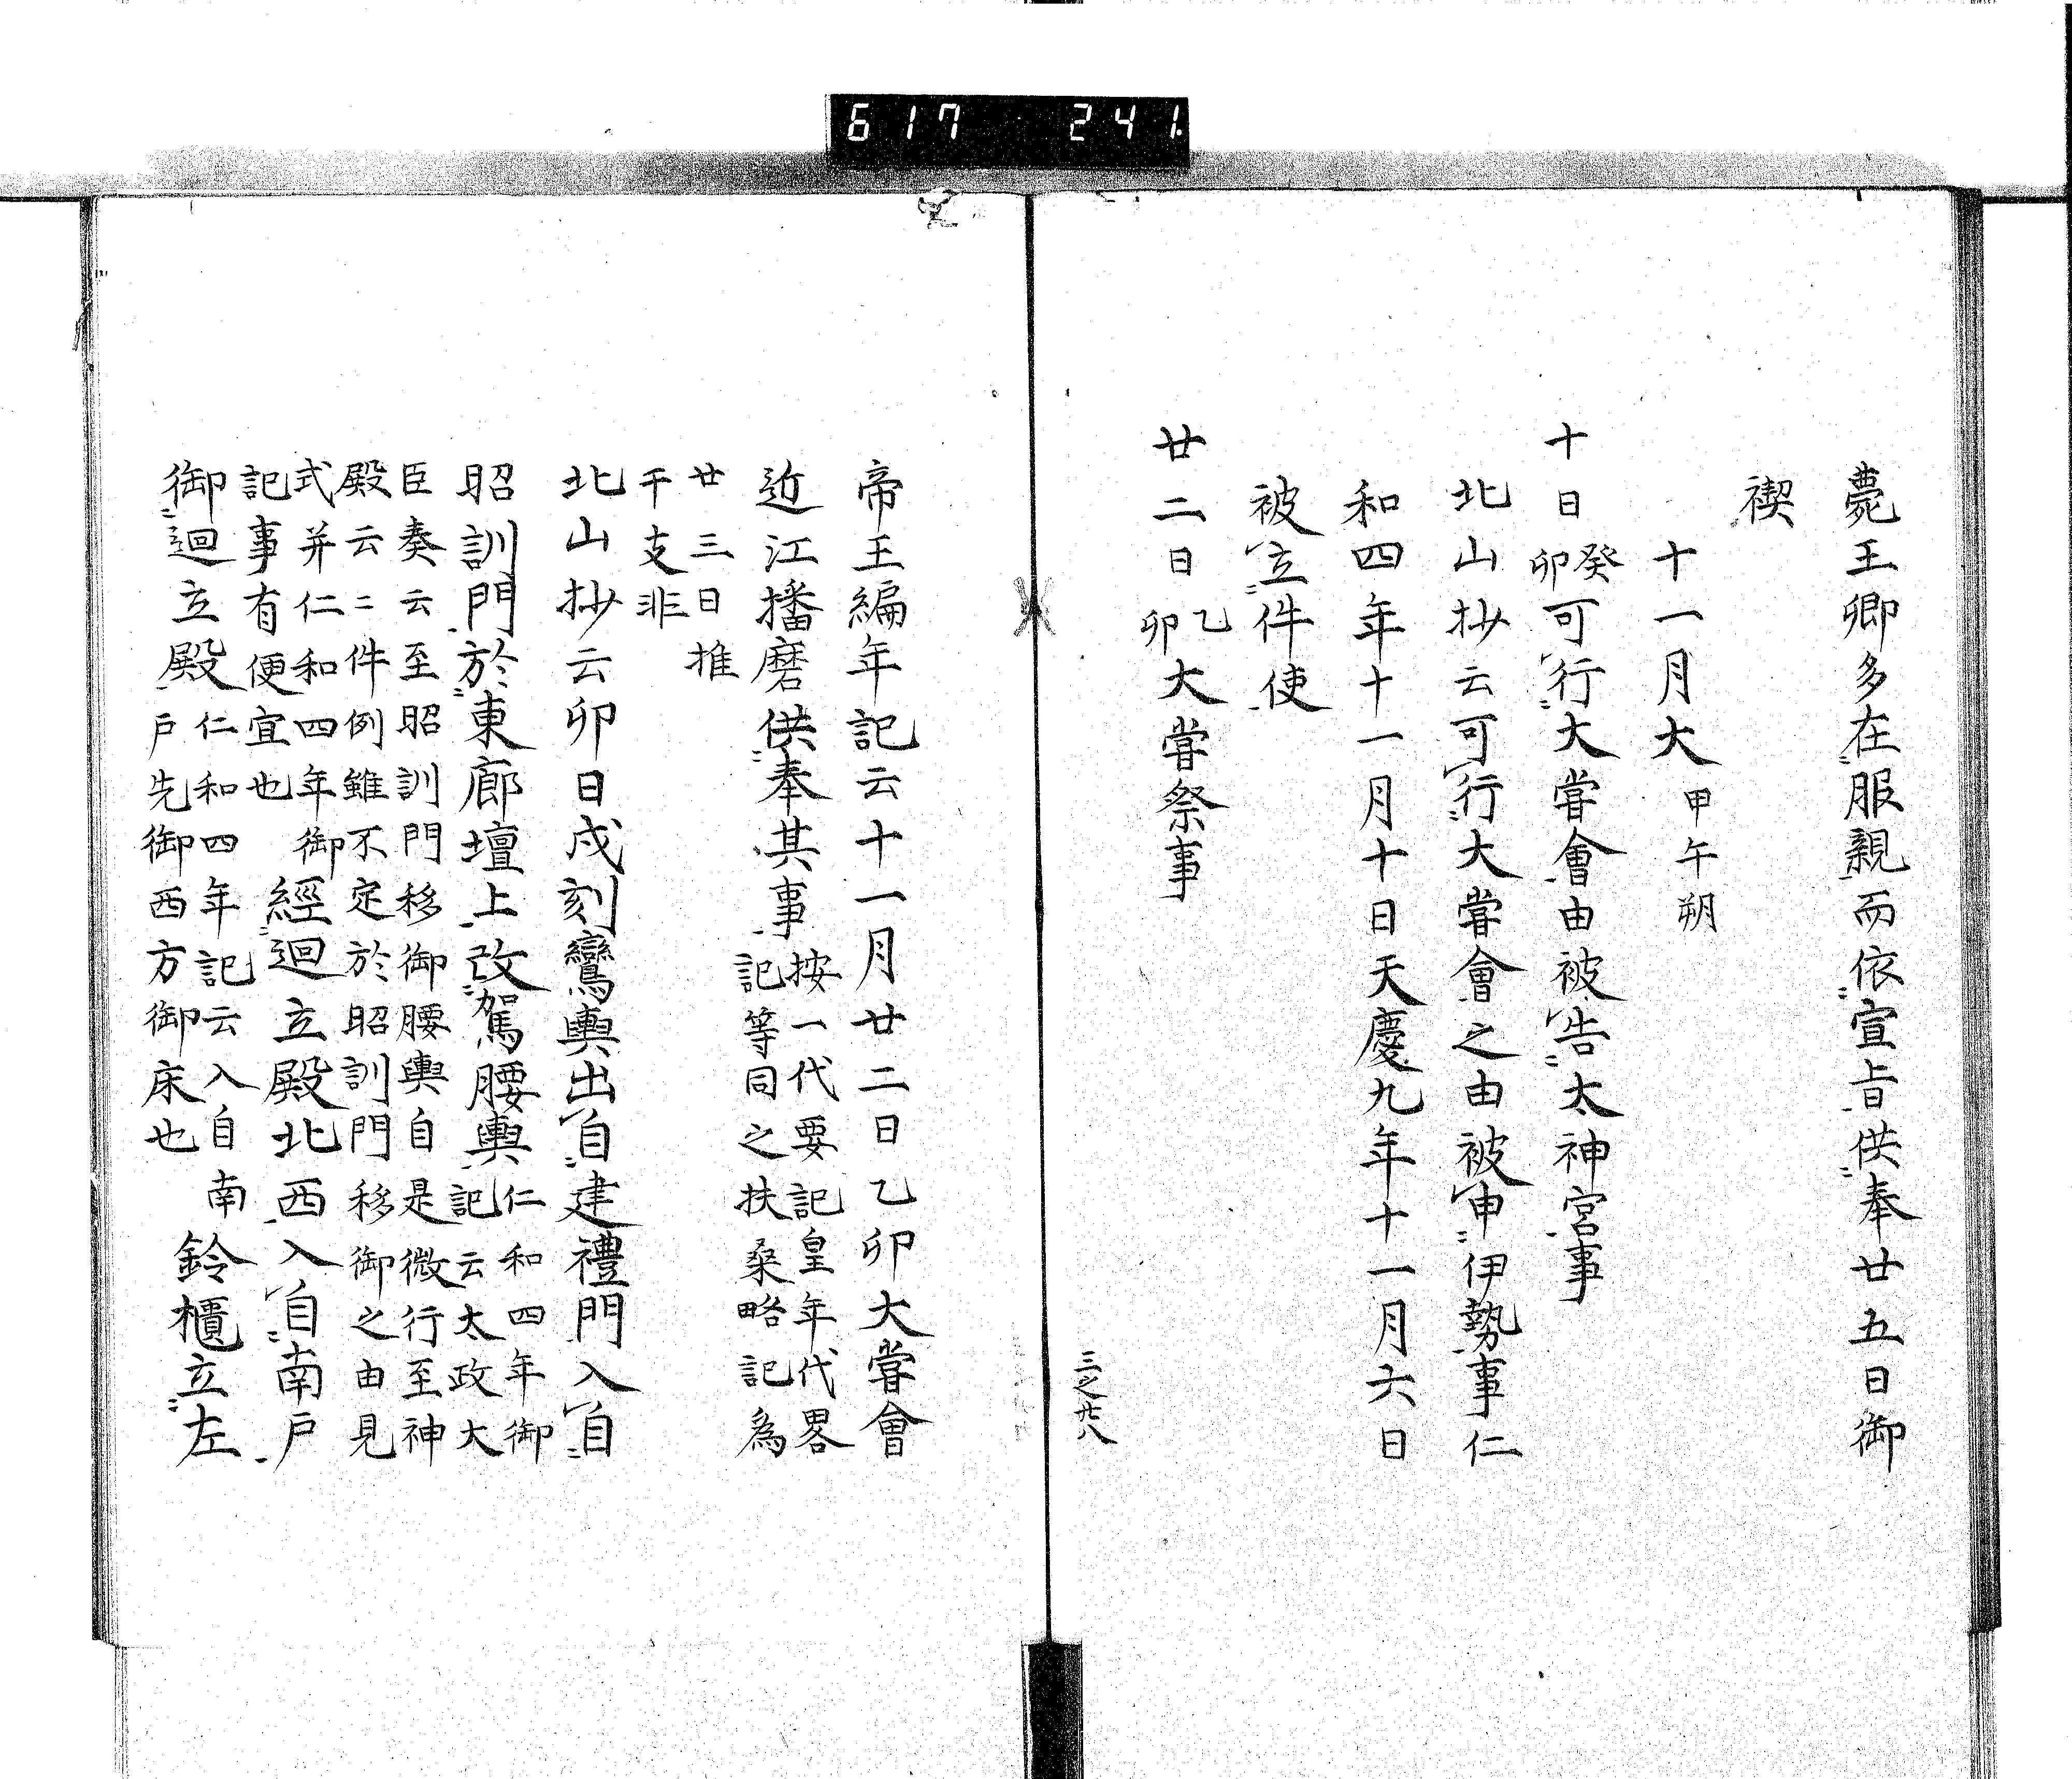 617 241.
薨王卿多在服親而依宣旨供奉廿五日御
禊
十一月大甲午朔
十日癸卯可行大嘗會由被告太神宮事
北山抄云可行大嘗會之由被申伊勢事仁
和四年十一月十日天慶九年十一月六日
被立件使
廿二日乙卯大嘗祭事
三之廿八
帝王編年記云十一月廿二日乙卯大嘗會
近江播磨供奉其事按一代要記皇年代畧
記等同之扶桑略記為
廿三日推
干支非
北山抄云卯日戌刻鸞輿出自建禮門入自
昭訓門於東廊壇上改駕腰輿仁和四年御
記云太政大
臣奏云至昭訓門移御腰輿自是微行至神
殿云〻件例雖不定於昭訓門移御之由見
式并仁和四年御
記事有便宜也
經迴立殿北西入自南戸
御迴立殿仁和四年記云入自南
戸先御西方御床也
鈴櫃立左